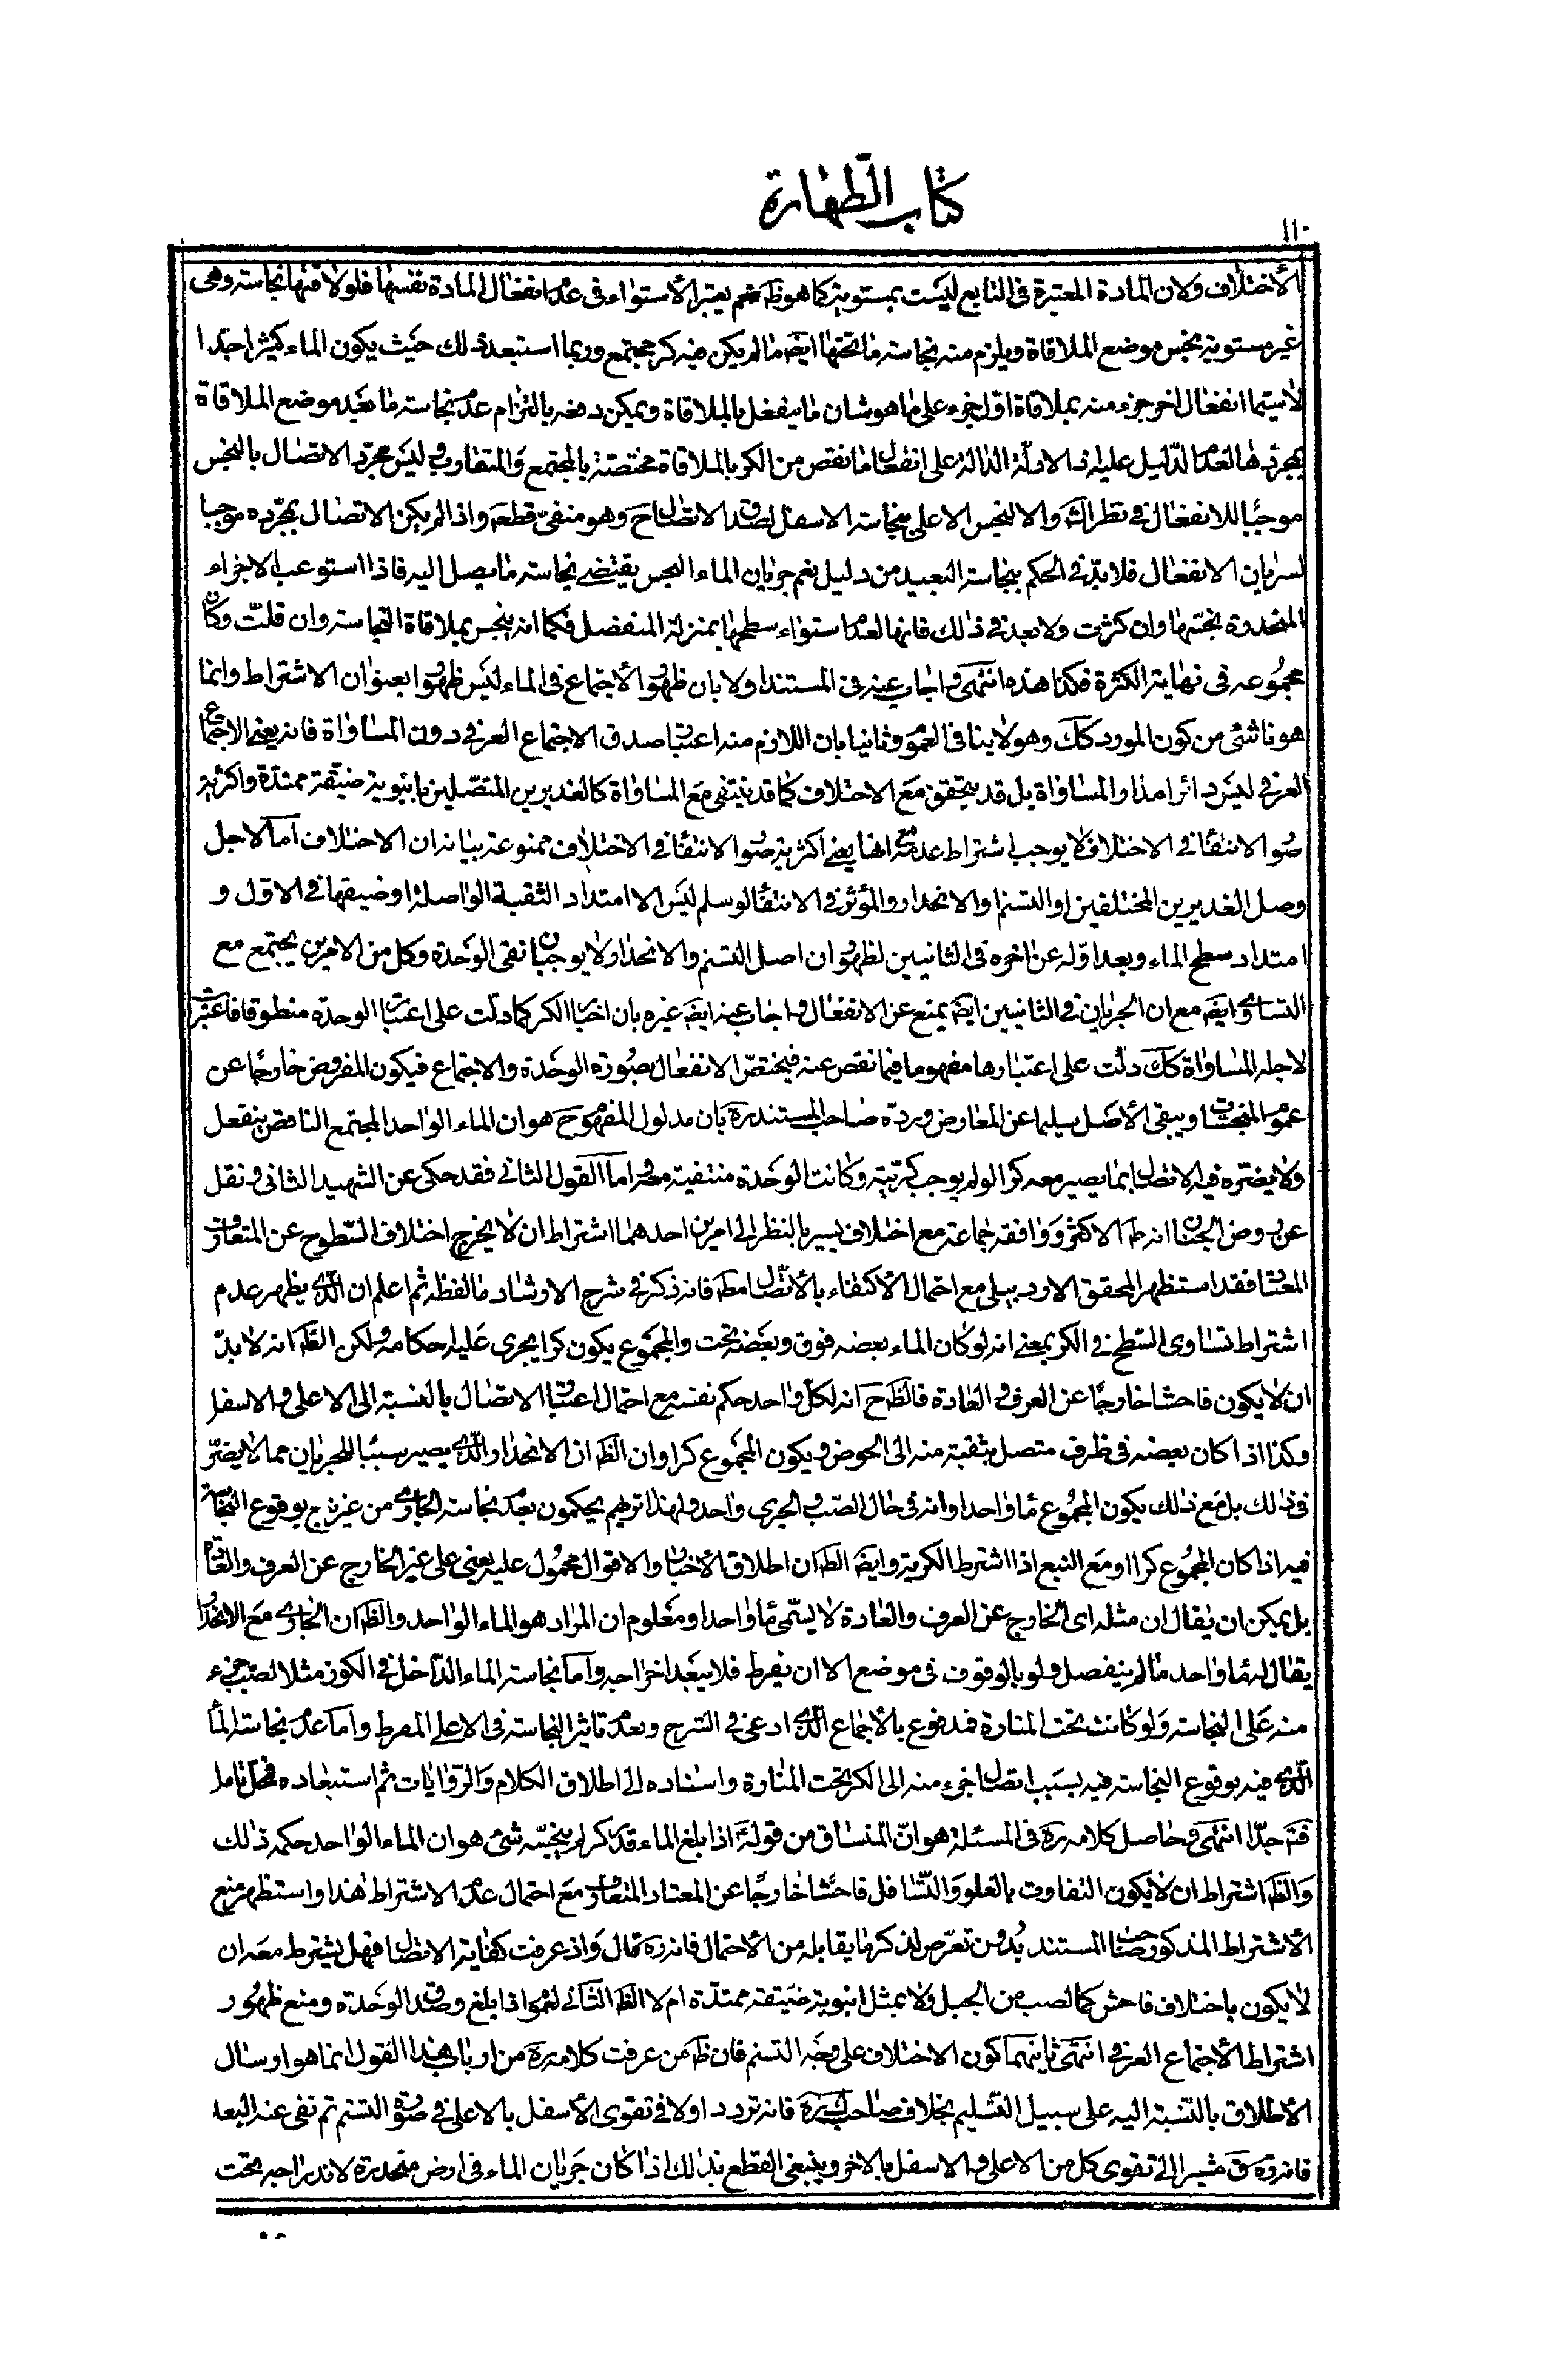 كتاب الطهارة
١١٠
الأختلاف ولان المادة المعتبرة فى النابع ليست بمستوية كما هو ظ نعم يعتبر الأستواء فى عدم انفعال المادة نفسها فلو لاقتها نجاسة وهى
غير مستوية نجس موضع الملاقاة ويلزم منه نجاسة ما تحتها ايضا ما لم يكن فيه كر مجتمع وربما استبعد ذلك حيث يكون الماء كثيرا جدا
لاسيما انفعال اخر جزء منه بملاقاة اول جزء على ما هو شان ما ينفعل بالملاقاة ويمكن دفعه بالتزام عدم نجاسة ما بعد موضع الملاقاة
بمجردها لعدم الدليل عليه اذ الادلة الدالة على انفعال ما نقص من الكر بالملاقاة مختصة بالمجتمع والمتقارب وليس مجرد الاتصال بالنجس
موجبا للانفعال فى نظر الشارع والا لنجس الاعلى بنجاسة الاسفل لصدق الاتصال ح وهو منفى قطعا واذا لم يكن الاتصال بمجرده موجبا
لسريان الانفعال فلابد فى الحكم بنجاسة البعيد من دليل نعم جريان الماء النجس يقتضى نجاسة ما يصل اليه فاذا استوعب الاجزاء
المنحدرة نجسها وان كثرت ولا بعد فى ذلك فانها لعدم استواء سطحها بمنزلة المنفصل فكما انه ينجس بملاقاة النجاسة وان قلت وكان
مجموعه فى نهاية الكثرة فكذا هذه انتهى واجاب عنه فى المستند اولا بان ظهور الأجتماع فى الماء ليس ظهورا بعنوان الاشتراط وانما
هو ناشئ من كون المورد كك وهو لا ينافى العموم وثانيا بان اللازم منه اعتبار صدق الاجتماع العرفى دون المساواة فانه يعنى الاجتماع
العرفى ليس دائرا مدار المساواة بل قد يتحقق مع الاختلاف كما قد ينتفى مع المساواة كالغديرين المتصلين بانبوبة ضيقة ممتدة واكثرية
صور الانتفاء فى الاختلاف لا يوجب اشتراط عدمه مع انها يعنى اكثرية صور الانتفاء فى الاختلاف ممنوعة بيانه ان الاختلاف اما لاجل
وصل الغديرين المختلفين او التسنم او الانحدار والمؤثر فى الانتفاء لو سلم ليس الا امتداد الثقبة الواصلة او ضيقها فى الاول و
امتداد سطح الماء وبعد اوله عن اخره فى الثانيين لظهور ان اصل التسنم والانحدار لا يوجبان نفى الوحدة وكل من الامرين يجتمع مع
التساوى ايضا مع ان الجريان فى الثانيين ايضا يمنع عن الانفعال واجاب عنه ايضا غيره بان اخبار الكر كما دلت على اعتبار الوحدة منطوقا فاعتبرت
لاجله المساواة كك دلت على اعتبارها مفهوما فيما نقص عنه فيختص الانفعال بصورة الوحدة والاجتماع فيكون المفروض خارجا عن
عموم المنجسات ويبقى الأصل سليما عن المعارض ورده صاحب المستند ره بان مدلول المفهوم ح هو ان الماء الواحد المجتمع الناقص ينفعل
ولا يضره فيه الاتصال بما يصير معه كرا لو لم يوجب كريته وكانت الوحدة منتفية معه واما القول الثانى فقد حكى عن الشهيد الثانى ونقل
عن روض الجنان انه ظ الاكثر ووافقه جماعة مع اختلاف يسير بالنظر الى امرين احدهما اشتراط ان لا يخرج اختلاف السطوح عن المتعارف
المعتاد فقد استظهر المحقق الاردبيلى مع احتمال الأكتفاء بالأتصال مطلقا فانه ذكر فى شرح الارشاد ما لفظه ثم اعلم ان الذى يظهر عدم
اشتراط تساوى السطح فى الكر بمعنى انه لو كان الماء بعضه فوق وبعضه تحت والمجموع يكون كرا يجرى عليه احكامه ولكن الظ انه لا بد
ان لا يكون فاحشا خارجا عن العرف والعادة فالظ ح انه لكل واحد حكم نفسه مع احتمال اعتبار الاتصال بالنسبة الى الاعلى والاسفل
وكذا اذا كان بعضه فى ظرف متصل بثقبة منه الى الحوض ويكون المجموع كرا وان الظ ان الانحدار الذى يصير سببا للجريان مما لا يضر
فى ذلك بل مع ذلك يكون المجموع ماء واحدا وانه فى حال الصب والجرى واحد ولهذا تريهم يحكمون بعدم نجاسة الجارى من غير نبع بوقوع النجاسة
فيه اذا كان المجموع كرا او مع النبع اذا اشترط الكرية وايضا الظ ان اطلاق الأخبار والاقوال محمول عليه يعنى على غير الخارج عن العرف والعادة
بل يمكن ان يقال ان مثله اى الخارج عن العرف والعادة لا يسمى ماء واحدا ومعلوم ان المراد هو الماء الواحد والظ ان الجارى مع الانحدار
يقال له ماء واحد ما لم ينفصل ولو بالوقوف فى موضع الا ان يفرط فلا يبعد اخراجه واما نجاسة الماء الداخل فى الكوز مثلا لصب جزء
منه على النجاسة ولو كانت تحت المنارة فمدفوع بالأجماع الذى ادعى فى الشرح وبعدم تاثير النجاسة فى الاعلى المفرط واما عدم نجاسة الماء
الذى فيه بوقوع النجاسة فيه بسبب اتصال جزء منه الى الكر تحت المنارة واسناده الى اطلاق الكلام والروايات ثم استبعاده فمحل تامل
فتم جدا انتهى وحاصل كلامه ره فى المسئلة هو ان المنساق من قوله ع اذا بلغ الماء قدر كر لم ينجسه شئ هو ان الماء الواحد حكمه ذلك
والظ اشتراط ان لا يكون التفاوت بالعلو والتسافل فاحشا خارجا عن المعتاد المتعارف مع احتمال عدم الاشتراط هذا واستظهر منع
الأشتراط المذكور صاحب المستند بدون تعرض لذكر ما يقابله من الأحتمال فانه ره قال واذ عرفت كفاية الاتصال فهل يشترط معه ان
لا يكون باختلاف فاحش كالصب من الجبل ولا بمثل انبوبة ضيقة ممتدة ام لا الظ الثانى لعموم اذا بلغ وصدق الوحدة ومنع ظهور
اشتراط الأجتماع العرفى انتهى ثانيهما كون الاختلاف على وجه التسنم فان ظ من عرفت كلامه ره من ارباب هذا القول انما هو ارسال
الأطلاق بالنسبة اليه على سبيل التسليم بخلاف صاحب ك ره فانه تردد اولا فى تقوى الأسفل بالاعلى فى صورة التسنم ثم نفى عنه البعد
فانه ره ق مشيرا الى تقوى كل من الاعلى والاسفل بالاخر وينبغى القطع بذلك اذا كان جريان الماء فى ارض منحدرة لاندراجه تحت